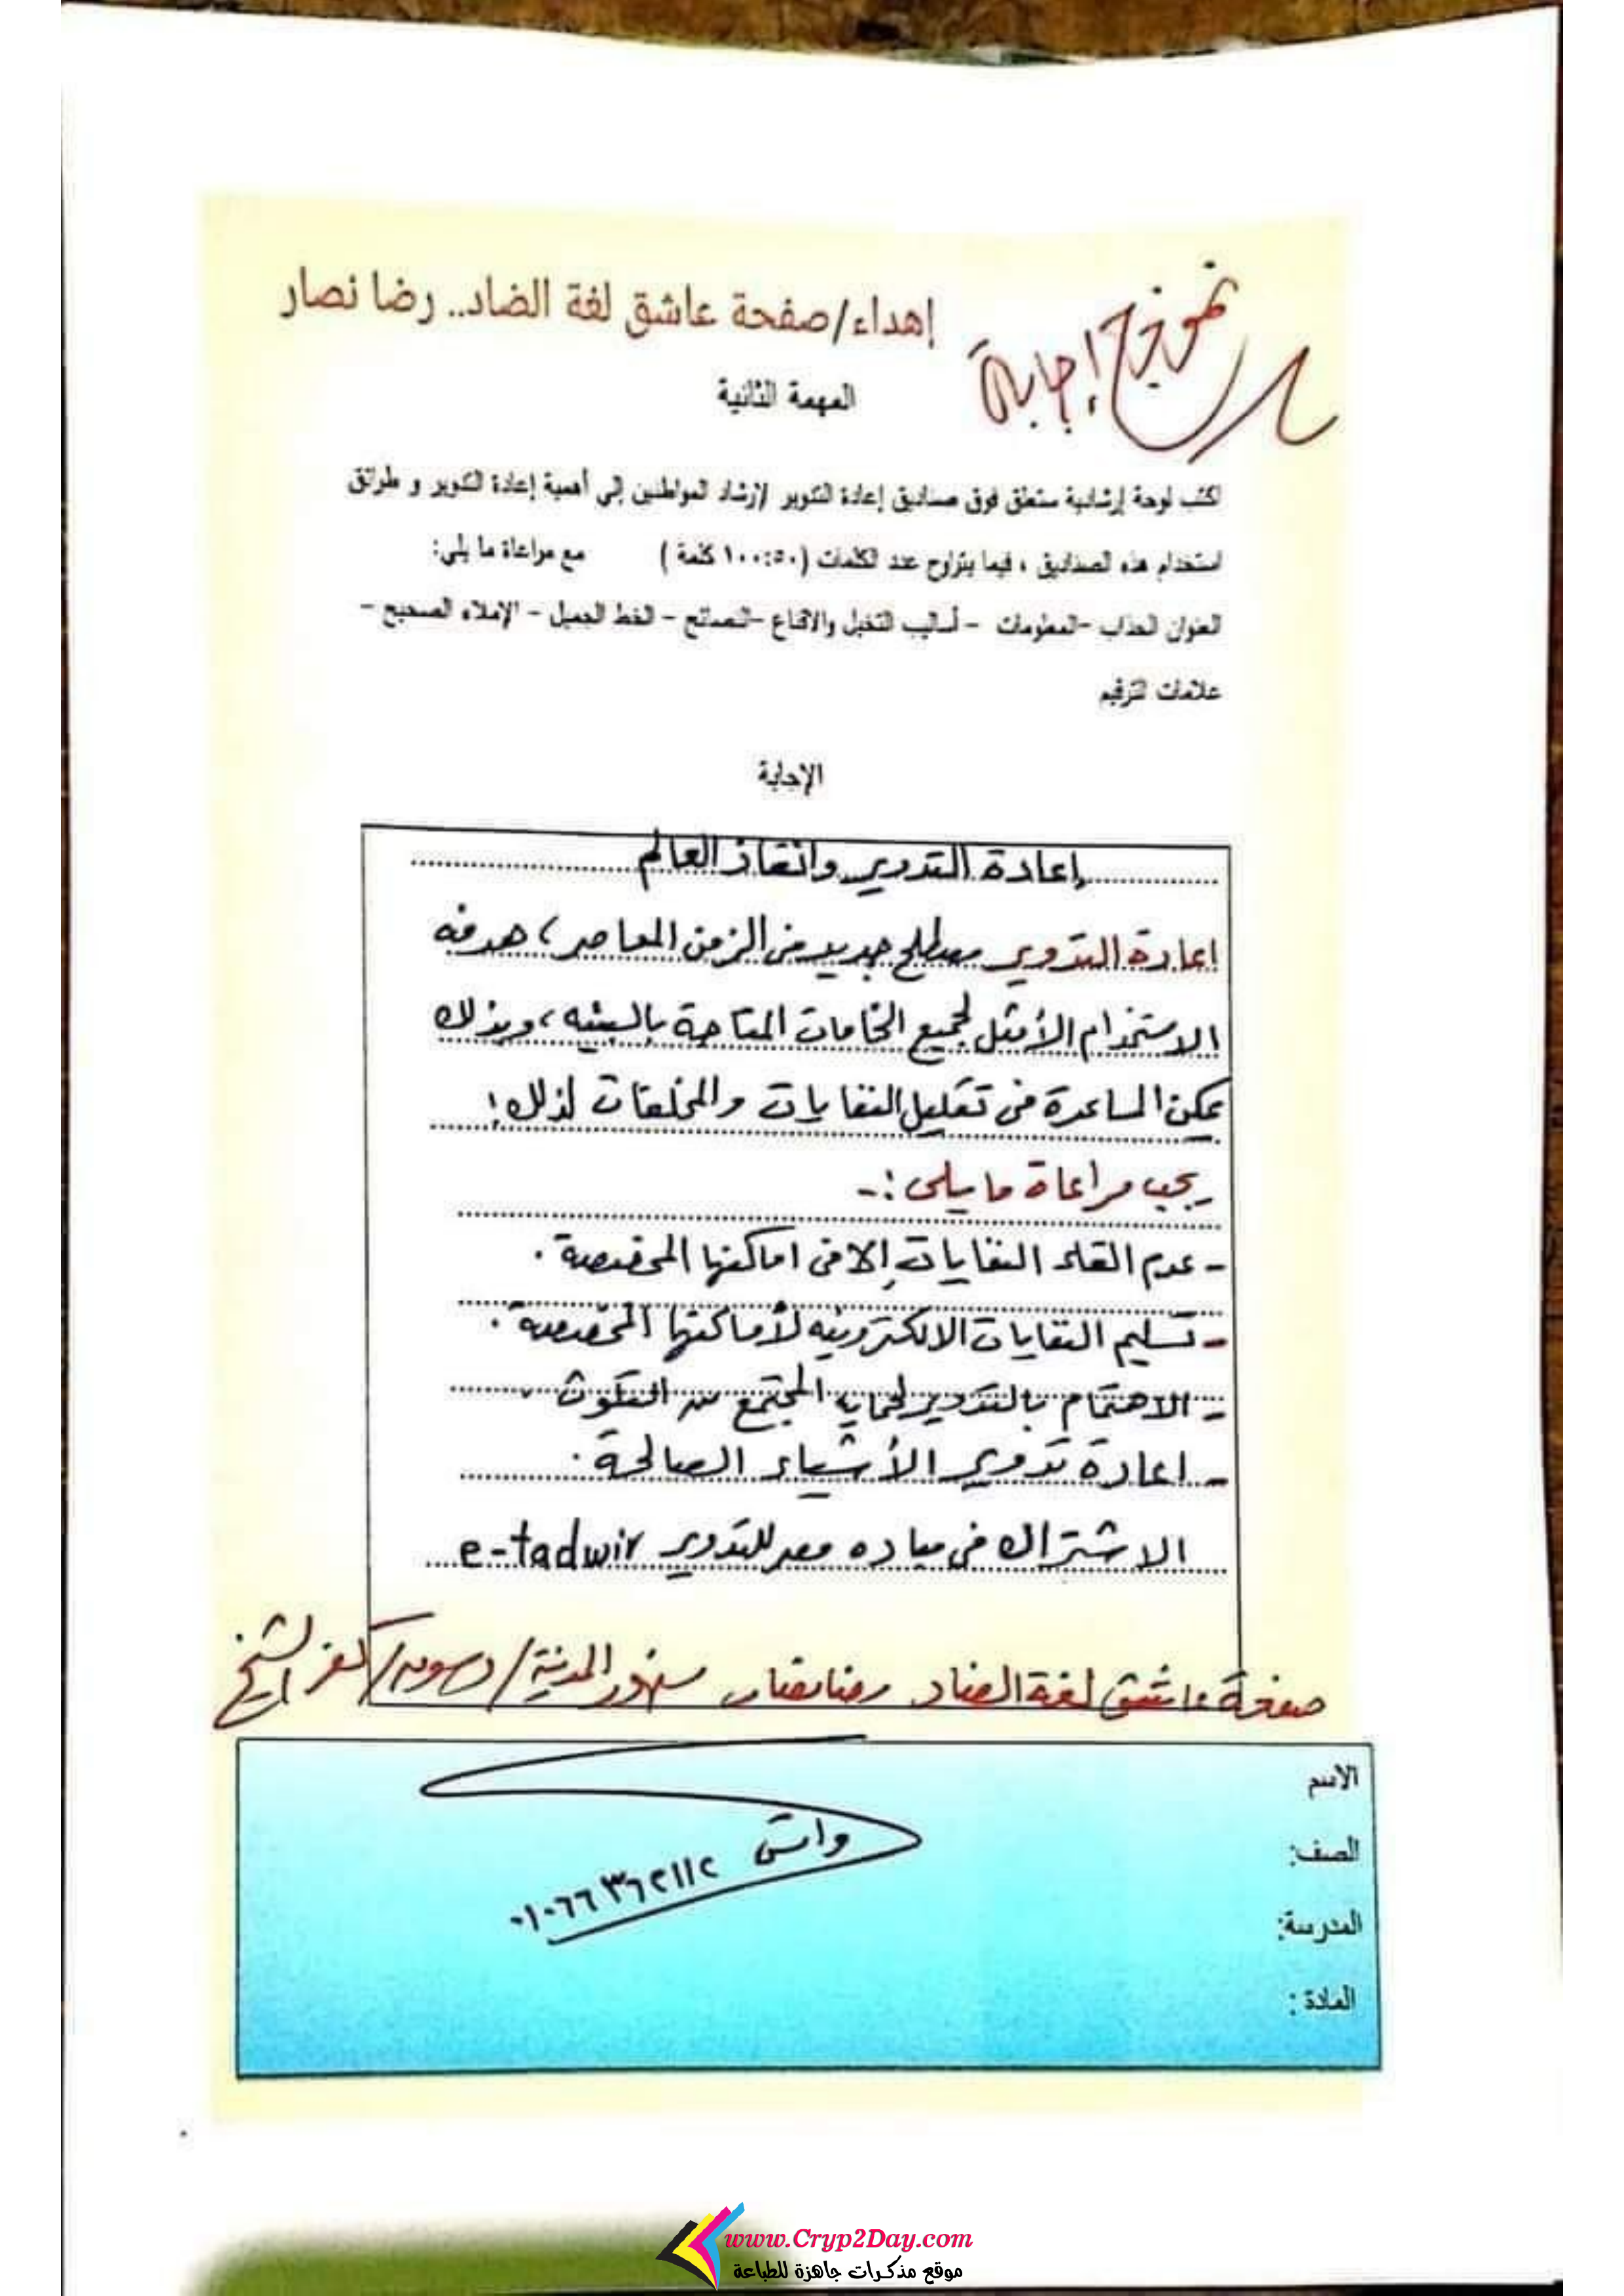 نموذج إجابة
إهداء/صفحة عاشق لغة الضاد.. رضا نصار
المهمة الثانية
اكتب لوحة إرشادية ستعلق فوق صناديق إعادة التدوير لإرشاد المواطنين إلي أهمية إعادة التدوير و طرائق
استخدام هذه الصناديق ، فيما يتراوح عدد الكلمات (١٠٠:٥٠ كلمة ) مع مراعاة ما يلي:
العنوان الجذاب -المعلومات - أساليب التخيل والاقناع -النصائح - الخط الجميل - الإملاء الصحيح -
علامات الترقيم
الإجابة
إعادة التدوير وانقاذ العالم
اعادة التدوير مصطلح جديد في الزمن المعاصر، هدفه
الاستخدام الأمثل لجميع الخامات المتاحة بالبيئه، وبذلك
يمكن المساعدة في تقليل النفايات والمخلفات لذلك!
يجب مراعاة ما يلى :-
- عدم القاء النفايات إلا في اماكنها المخصصة .
- تسليم النفايات الالكترونيه لأماكنها المخصصة .
- الاهتمام بالتدوير لحمايه المجتمع من التلوث .
- اعادة تدوير الأشياء الصالحة .
الاشتراك في مبادره مصر للتدوير e-tadwir
صفحة عاشق لغة الضاد رضا نصار سنهور المدينة/دسوق/كفر الشيخ
الاسم
الصف:
المدرسة:
المادة :
واتس ٠١٠٦٦٣٦٢١١٢
www.Cryp2Day.com
موقع مذكرات جاهزة للطباعة